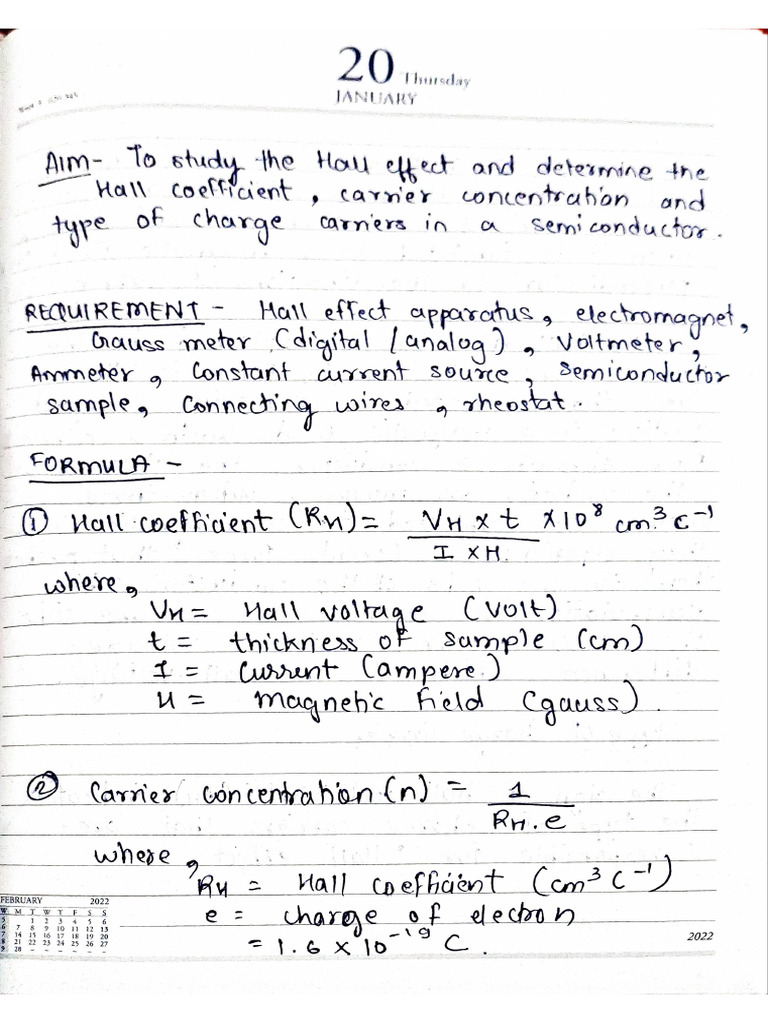 20 Thursday
JANUARY
AIM - To study the Hall effect and determine the
Hall coefficient, carrier concentration and
type of charge carriers in a semiconductor.
REQUIREMENT - Hall effect apparatus, electromagnet,
Gauss meter (digital / analog), Voltmeter,
Ammeter, Constant current source, Semiconductor
sample, Connecting wires, rheostat.
FORMULA -
① Hall coefficient (RH) = VH x t x 10⁸ cm³ C⁻¹
I x H.
where,
VH = Hall voltage (Volt)
t = thickness of sample (cm)
I = Current (ampere)
H = Magnetic field (gauss).
② Carrier Concentration (n) = 1
RH.e
where,
RH = Hall coefficient (cm³ C⁻¹)
e = charge of electron
= 1.6 x 10⁻¹⁹ C.
FEBRUARY 2022
W M T W T F S S
5 1 2 3 4 5 6
6 7 8 9 10 11 12 13
7 14 15 16 17 18 19 20
8 21 22 23 24 25 26 27
9 28 - - - - - -
2022